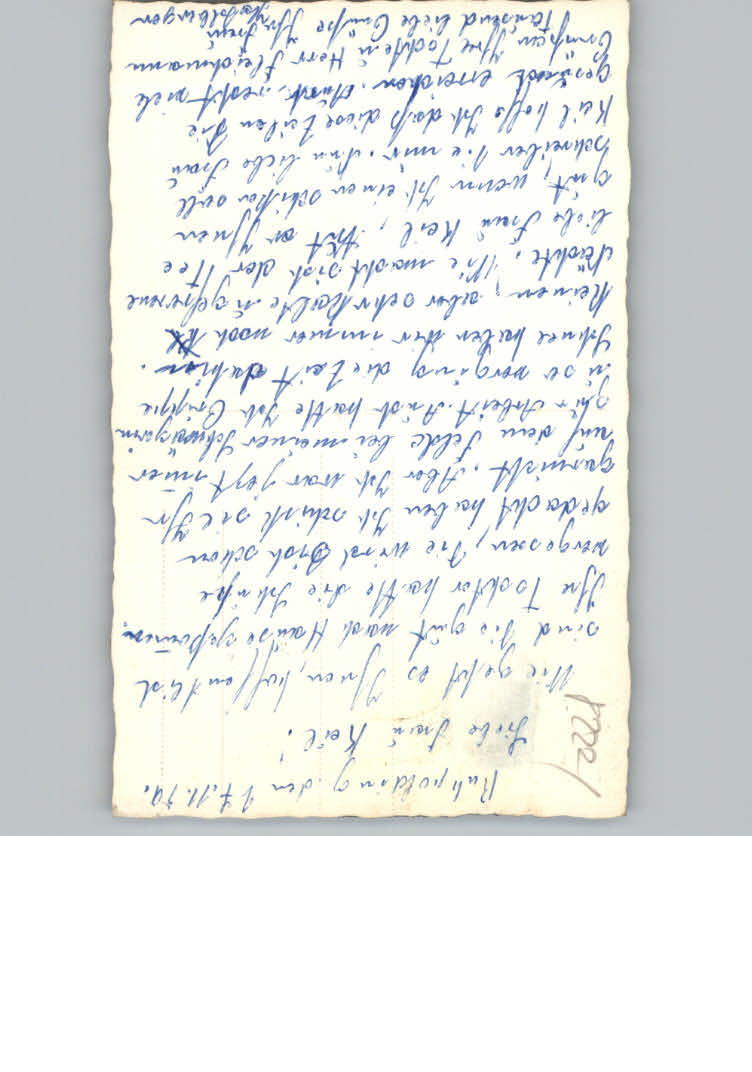 Ruhpolding, den 17.11.70.
Liebe Frau Keil!
Wie geht es Ihnen, hoffentlich
sind Sie gut nach Hause gekommen.
Ihr Tochter hatte die Schuhe
vergessen, Sie wird doch schon
gedacht haben Ich schick sie Ihr
gar nicht. Aber Ich war jezt immer
auf dem Felde bei meiner Schwägerin
zur Arbeit. Auch hatte Ich Grippe
u. so verging die Zeit dahin.
Schnee haben wir immer noch
keinen, aber sehr kalte u. gefrorene
Nächte. Wie macht sich der Tee
liebe Frau Keil, tut er Ihnen
gut, wenn Ich einen schiken soll
schreiben Sie mir. Nun liebe Frau
Keil hoffe Ich daß diese Zeilen Sie
gesund erreichen. Auch recht viele
Grüße an Ihre Tochter u. Herr Fleichmann
Tausend liebe Grüße Ihr Frau